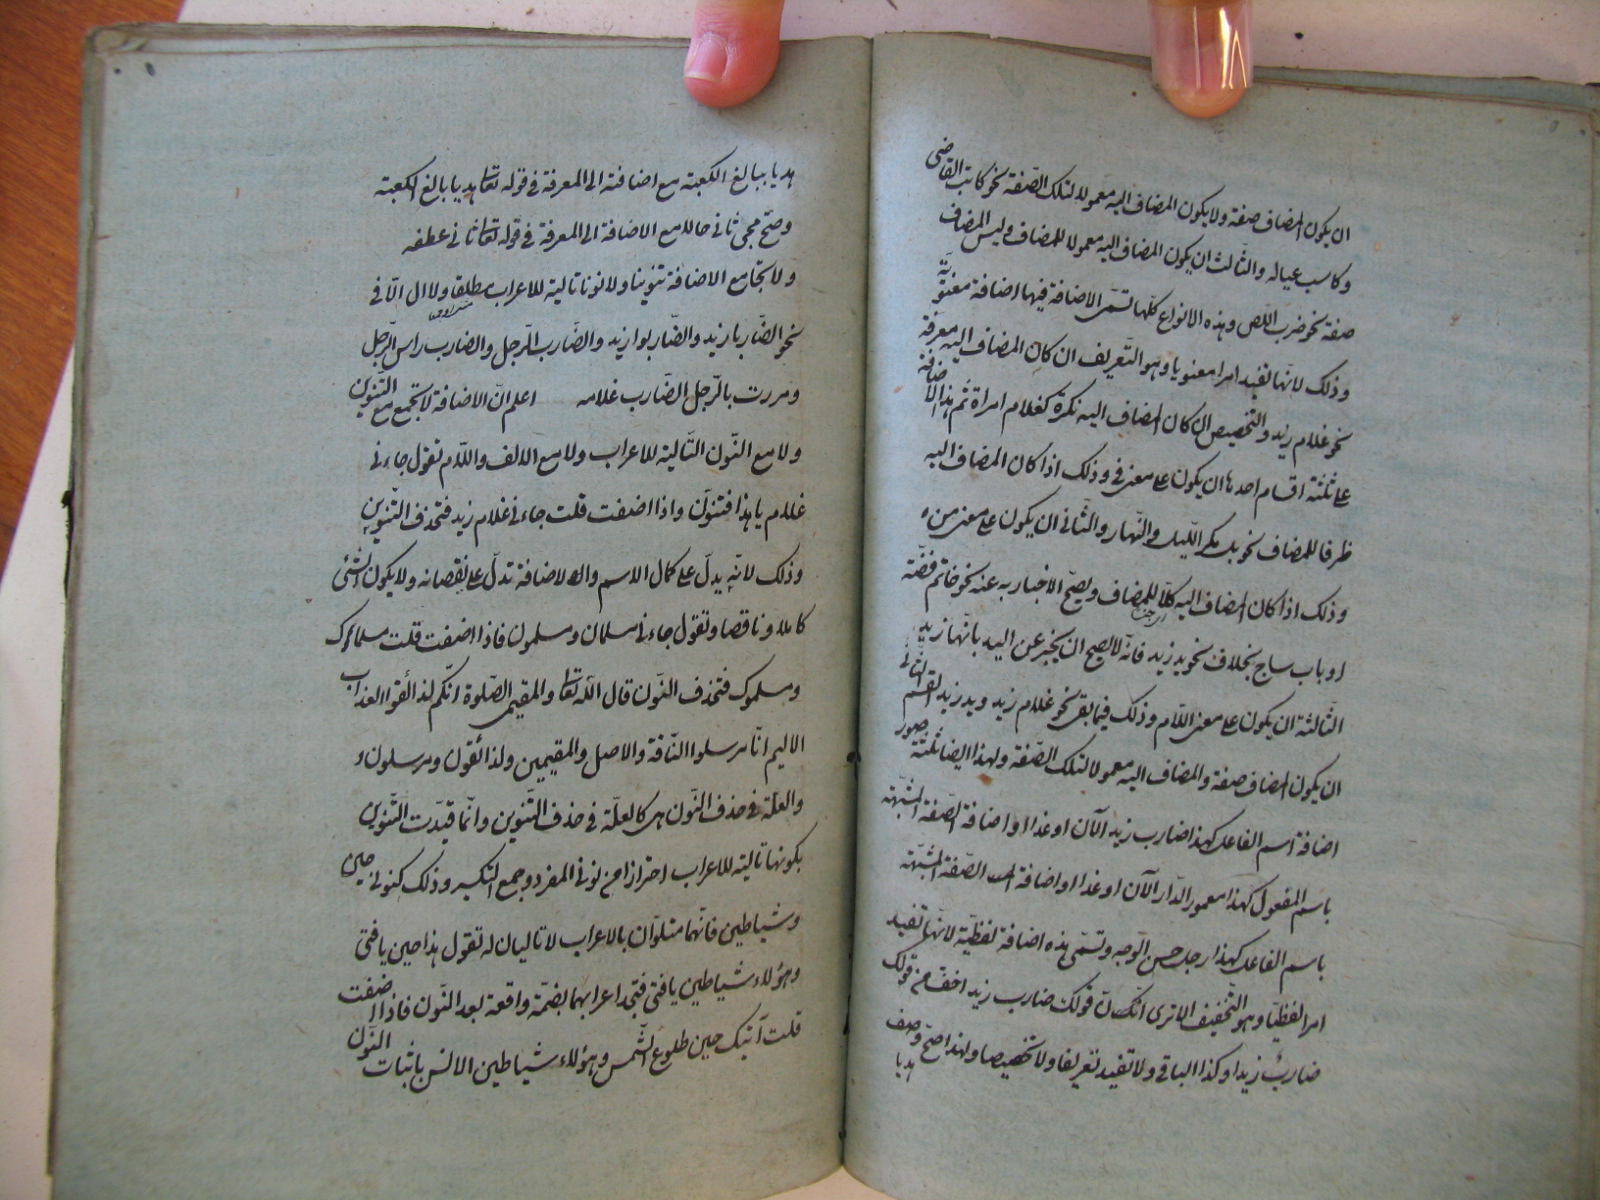 ان يكون المضاف صفة ولا يكون المضاف اليه معمولا لتلك الصّفة نحو كاتب القاضى
وكاسب عياله والثّالث ان يكون المضاف اليه معمولا للمضاف وليس المضاف
صفة نحو ضرب اللص وهذه الانواع كلّها تسمّى الاضافة فيها اضافة معنويّة
وذلك لانّها تفيد امرا معنويا وهو التّعريف ان كان المضاف اليه معرفة
نحو غلام زيد والتخصيص ان كان المضاف اليه نكرة كغلام امراة ثمّ هذا الاضافة
على ثلثة اقسام احدها ان يكون على معنى فى وذلك اذا كان المضاف اليه
ظرفا للمضاف نحو بل مكر اللّيل والنّهار والثّانى ان يكون على معنى من
وذلك اذا كان المضاف اليه كلّا للمضاف ويصحّ الاخبار به عنه نحو خاتم فضّة
او باب ساج بخلاف نحو يد زيد فانّه لا يصح ان يخبر عن اليد بانّها زيد
الثّالثة ان يكون على معنى اللّام وذلك فيما بقى نحو غلام زيد ويد زيد القسم الثّانى
ان يكون المضاف صفة والمضاف اليه معمولا لتلك الصّفة ولهذا ايضا ثلثة صور
اضافة اسم الفاعل كهذا ضارب زيد الآن او غدا واضافة الصّفة المشبّهة
باسم المفعول كهذا معمور الدّار الآن او غدا او اضافة الصّفة المشبّهة
باسم الفاعل كهذا رجل حسن الوجه وتسمّى هذه اضافة لفظيّة لانّها تفيد
امرا لفظيّا وهو التّخفيف الا ترى انّك انّ قولك ضارب زيد اخفّ من قولك
ضاربٌ زيدا وكذا الباقى ولا تفيد تعريفا ولا تخصيصا ولهذا صحّ وصف
هديا
هديا ببالغ الكعبة مع اضافته الى المعرفة فى قوله تعا هديا بالغ الكعبة
وصحّ مجى ثانى حالا مع الاضافة الى المعرفة فى قوله تعا ثانى عطفه
ولا تجامع الاضافة تنوينا ولا نونا تالية للاعراب مطلقا ولا ال الّا فى
نحو الضّاربا زيد والضّاربوا زيد والضّارب الرّجل والضارب راس الرّجل
ومررت بالرّجل الضّارب غلامه اعلم انّ الاضافة لا تجمع مع التّنوين
ولا مع النّون التّالية للاعراب ولا مع الالف واللّام تقول جاءنى
غلام يا هذا فتنوّن واذا اضفت قلت جاءنى غلام زيد فتحذف التّنوين
وذلك لانّه يدلّ على كمال الاسم والاضافة تدلّ على نقصانه ولا يكون الشئ
كاملا وناقصا وتقول جاءنى مسلمان ومسلمون فاذا اضفت قلت مسلماك
ومسلموك فتحذف النّون قال اللّه تعا والمقيمى الصّلوة انّكم لذائقوا العذاب
الاليم انّا مرسلوا النّاقة والاصل والمقيمين ولذائقون ومرسلون
والعلّة فى حذف النّون هى كالعلّة فى حذف التّنوين وانّما قيّدت النّون
بكونها تالية للاعراب احترازا من نونى المفرد وجمع التكسير وذلك كنونى حين
وشياطين فانّهما متلوّان بالاعراب لا تاليان له تقول هذا حين يا فتى
وهؤلاء شياطين يا فتى فتجد اعرابهما بضمّة واقعة بعد النّون فاذا اضفت
قلت آتيك حين طلوع الشّمس وهؤلاء شياطين الانس باثبات النّون